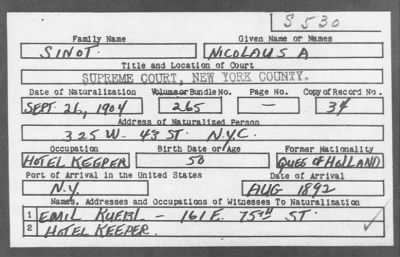 S530
Family Name Given Name or Names
SINOT. NICOLAUS A
Title and Location of Court
SUPREME COURT, NEW YORK COUNTY.
Date of Naturalization Volume or Bundle No. Page No. Copy of Record No.
SEPT. 26, 1904 265 — 34
Address of Naturalized Person
325 W. 43 ST. N.Y.C.
Occupation Birth Date or Age Former Nationality
HOTEL KEEPER 50 QUEE OF HOLLAND
Port of Arrival in the United States Date of Arrival
N.Y. AUG 1892
Names, Addresses and Occupations of Witnesses To Naturalization
1 EMIL KUEBL — 161 E. 75TH ST.
2 HOTEL KEEPER.